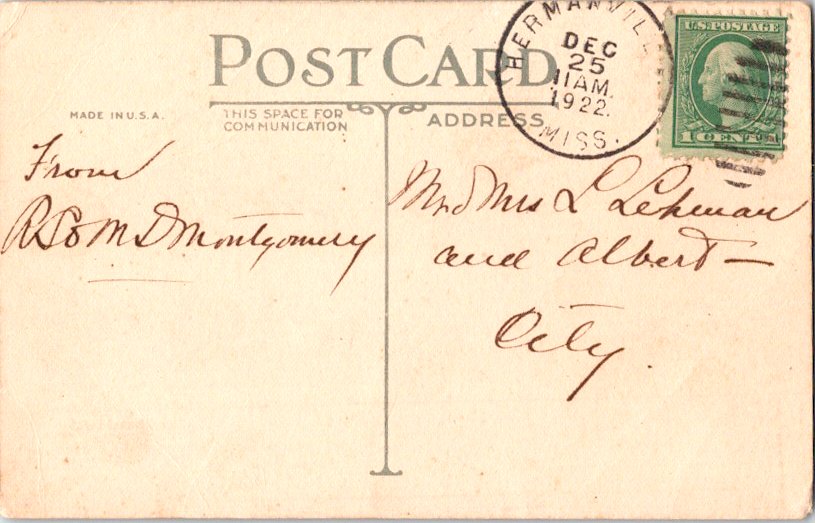 POST CARD
MADE IN U.S.A.
THIS SPACE FOR
COMMUNICATION
ADDRESS
HERMANVILLE
DEC
25
11 AM.
1922.
MISS.
U.S. POSTAGE
1 CENT 1
From
Montgomery
Mr & Mrs L Lehman
and Albert —
City.